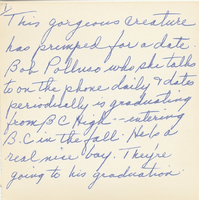 This gorgeous creature
has primped for a date.
Bob Polluso who she talks
to on the phone daily & dates
periodically is graduating
from B C High -- entering
B.C in the fall. He is a
real nice boy. They're
going to his graduation.